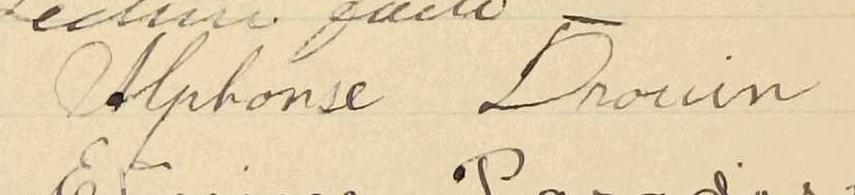 Lecture faite
Alphonse Drouin
Paradis